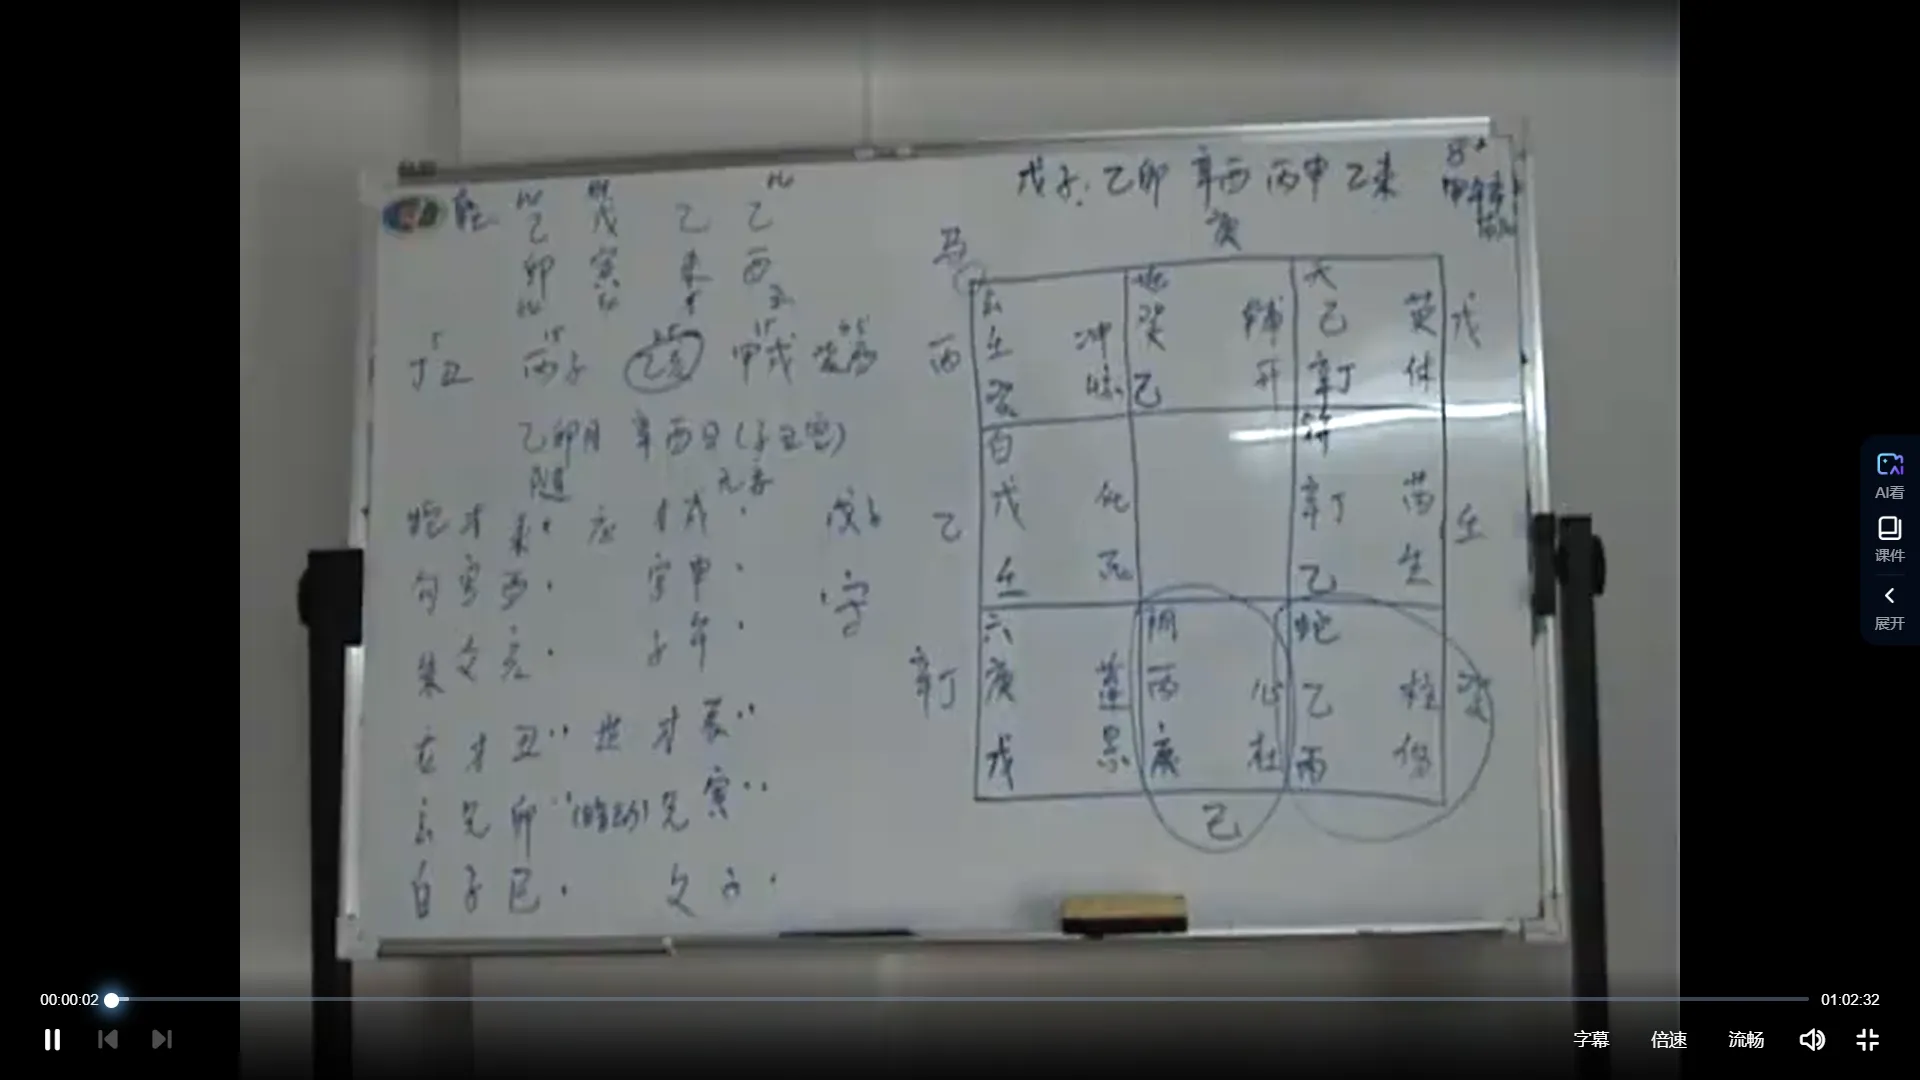 戊子: 乙卯 辛酉 丙申 乙未
庚
乙 戊 乙 乙
卯 寅 未 酉
丁丑 丙子 乙亥 甲戌
乙卯月 辛酉日(子丑空)
随
蛇 才 未 应 才 戌
句 官 酉 官 申
朱 父 亥 子 午
才 丑 世 才 辰
玄 兄 卯 (暗动) 兄 寅
白 子 巳 父 子
马
玄 地 天
壬 冲 癸 辅 己 英
癸 己 开 辛丁 休
丙 戊
白 符
戊 任 辛丁 芮
壬 死 乙 生
乙 壬
六 阴 蛇
庚 蓬 丙 心 乙 柱
戊 景 庚 杜 丙 伤
辛丁 癸
己
AI看
课件
展开
00:00:02
01:02:32
字幕 倍速 流畅